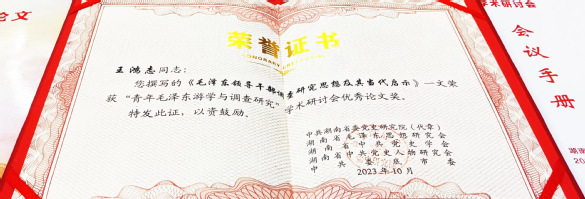 论文
荣誉证书
HONORARY CREDENTIAL
王鸿志同志：
您撰写的《毛泽东领导干部调查研究思想及其当代启示》一文荣
获“青年毛泽东游学与调查研究”学术研讨会优秀论文奖。
特发此证，以资鼓励。
中共湖南省委党史研究院（代章）
湖南省毛泽东思想研究会
湖南省中共党史学会
湖南省中共党史人物研究会
中共娄底市委
2023年10月
学术研讨会
会议手册
湖南
20